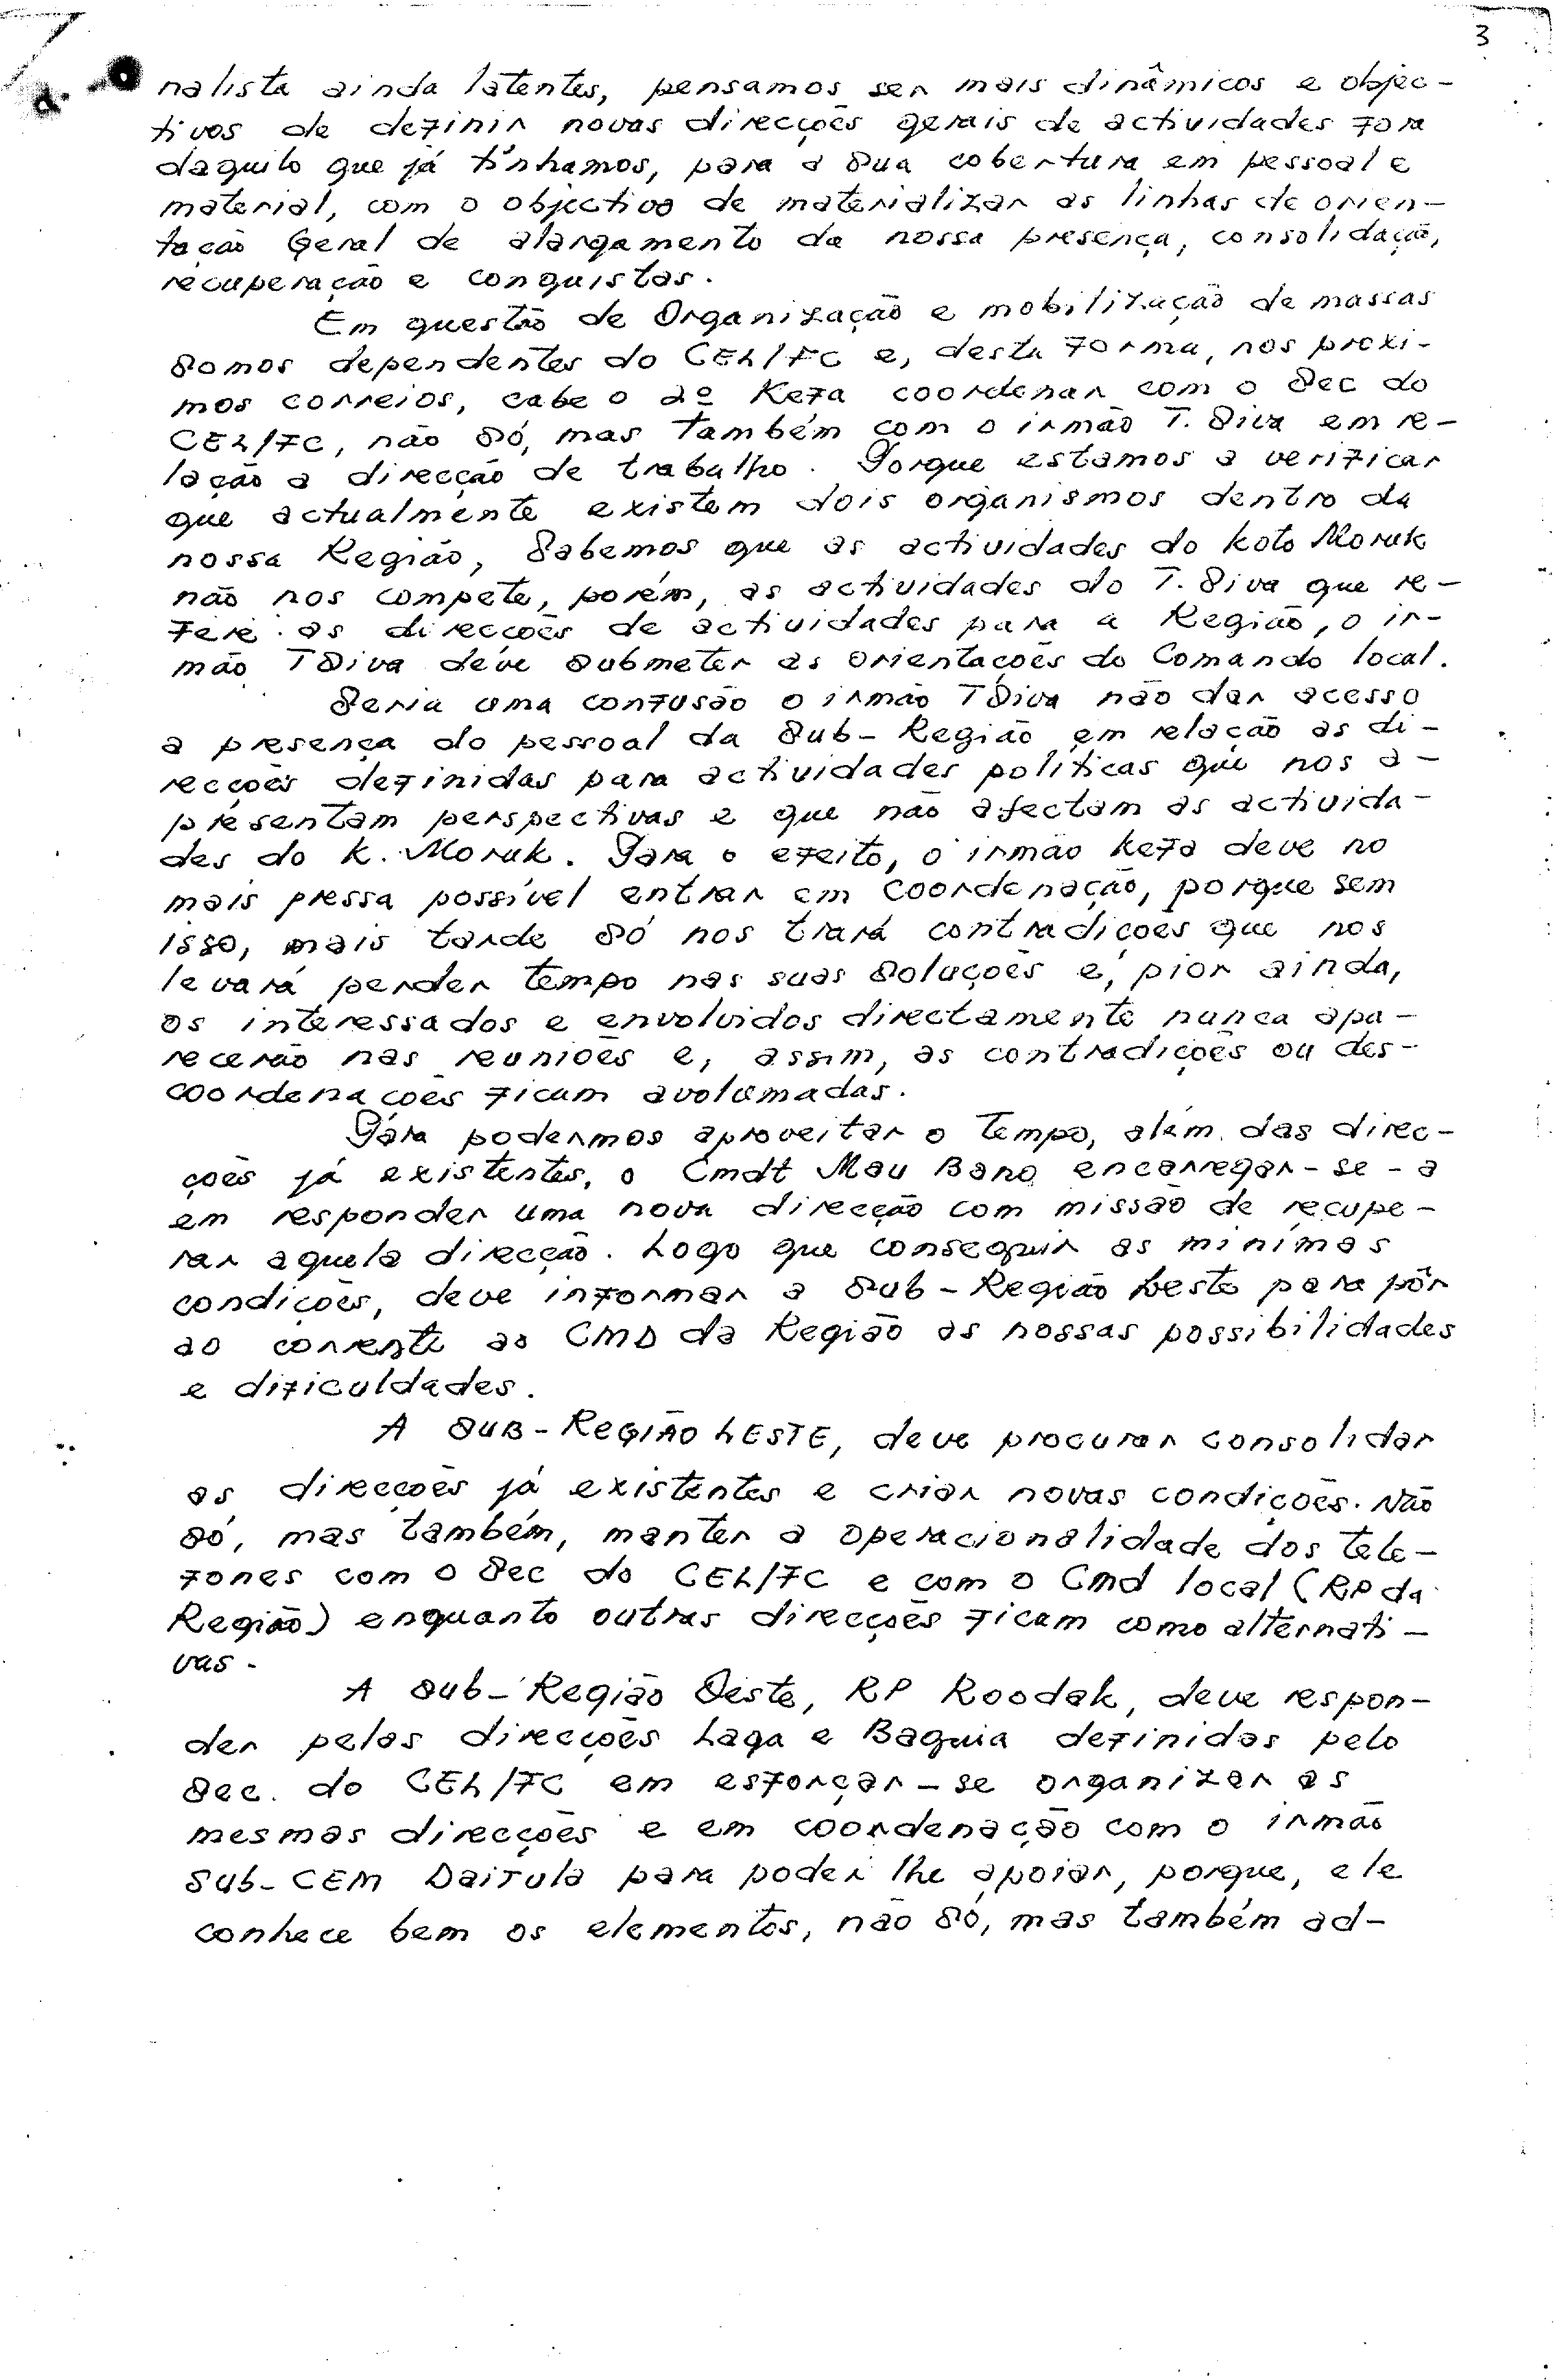 3
nalista ainda latentes, pensamos ser mais dinâmicos e objec-
tivos de definir novas direcções gerais de actividades fora
daquilo que já tínhamos, para a sua cobertura em pessoal e
material, com o objectivo de materializar as linhas de orien-
tação Geral de alargamento da nossa presença, consolidação,
recuperação e conquistas.
Em questão de Organização e mobilização de massas
somos dependentes do CEL/FC e, desta forma, nos proxi-
mos correios, cabe o 2º Kefa coordenar com o Sec do
CEL/FC, não só, mas também com o irmão T. Siva em re-
lação a direcção de trabalho. Porque estamos a verificar
que actualmente existem dois organismos dentro da
nossa Região, Sabemos que as actividades do Koto Moruk
não nos compete, porém, as actividades do T. Siva que re-
fere as direcções de actividades para a Região, o ir-
mão TSiva deve submeter as orientações do Comando local.
Seria uma confusão o irmão TSiva não dar acesso
a presença do pessoal da Sub-Região em relação as di-
recções definidas para actividades políticas que nos a-
presentam perspectivas e que não afectam as activida-
des do K. Moruk. Para o efeito, o irmão Kefa deve no
mais pressa possível entrar em coordenação, porque sem
isso, mais tarde só nos trará contradições que nos
levará perder tempo nas suas soluções e, pior ainda,
os interessados e envolvidos directamente nunca apa-
recerão nas reuniões e, assim, as contradições ou des-
coordenações ficam avolumadas.
Para podermos aproveitar o tempo, além das direc-
ções já existentes, o Cmdt Mau Bano encarregar-se-a
em responder uma nova direcção com missão de recupe-
rar aquela direcção. Logo que conseguir as minimas
condições, deve informar a Sub-Região Leste para pôr
ao corrente ao CMD da Região as nossas possibilidades
e dificuldades.
A SUB-REGIÃO LESTE, deve procurar consolidar
as direcções já existentes e criar novas condições. Não
só, mas também, manter a operacionalidade dos tele-
fones com o Sec do CEL/FC e com o Cmd local (RP da
Região) enquanto outras direcções ficam como alternati-
vas.
A Sub-Região Oeste, RP Roodak, deve respon-
der pelas direcções Laga e Baguia definidas pelo
Sec. do CEL/FC em esforçar-se organizar as
mesmas direcções e em coordenação com o irmão
Sub-CEM Daitula para poder lhe apoiar, porque, ele
conhece bem os elementos, não só, mas também ad-